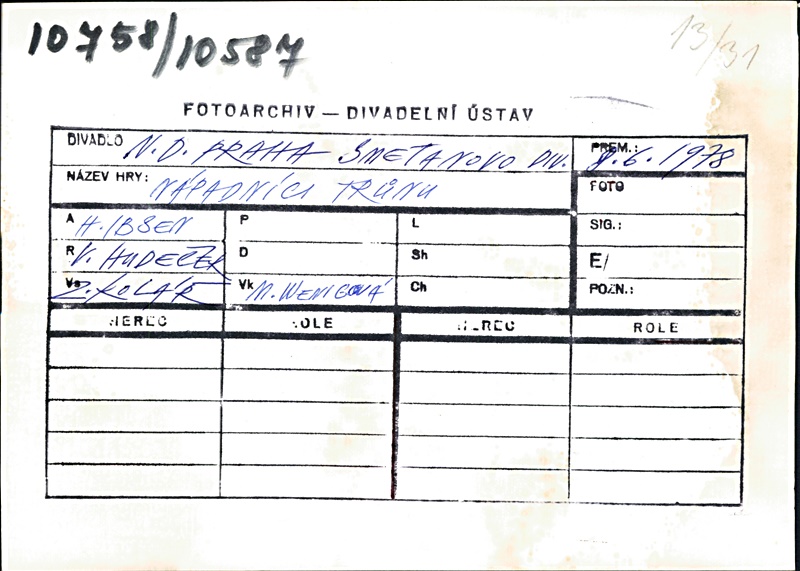 10758/10587
13/31
FOTOARCHIV — DIVADELNÍ ÚSTAV
DIVADLO N.D. PRAHA - SMETANOVO DIV.
PREM.: 8.6.1978
NÁZEV HRY: NÁPADNÍCI TRŮNU
FOTO
A H. IBSEN
P
L
SIG.:
R V. HUDEČEK
D
Sh
E/
Vs Z. KOLÁŘ
Vk M. WENIGOVÁ
Ch
POZN.:
HEREC ROLE HEREC ROLE